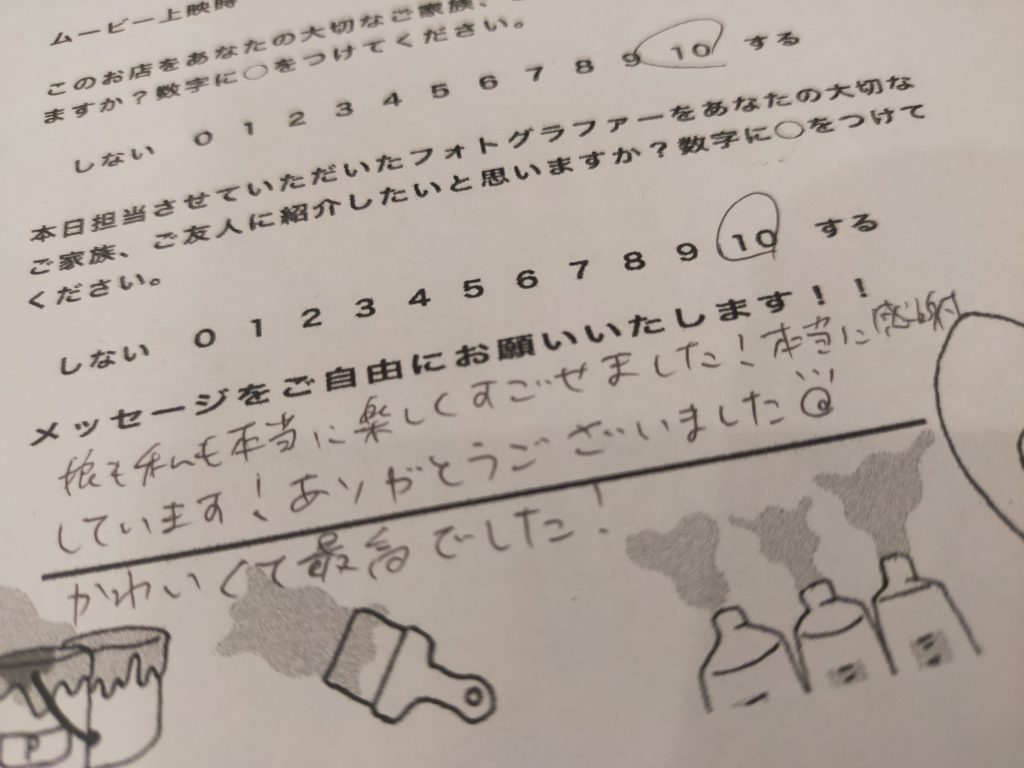 ムービー上映時
このお店をあなたの大切なご家族、
ますか？数字に○をつけてください。
しない 0 1 2 3 4 5 6 7 8 9 10 する
本日担当させていただいたフォトグラファーをあなたの大切な
ご家族、ご友人に紹介したいと思いますか？数字に○をつけて
ください。
しない 0 1 2 3 4 5 6 7 8 9 10 する
メッセージをご自由にお願いいたします！！
娘も私も本当に楽しくすごせました！本当に感謝
しています！ありがとうございました
かわいくて最高でした！